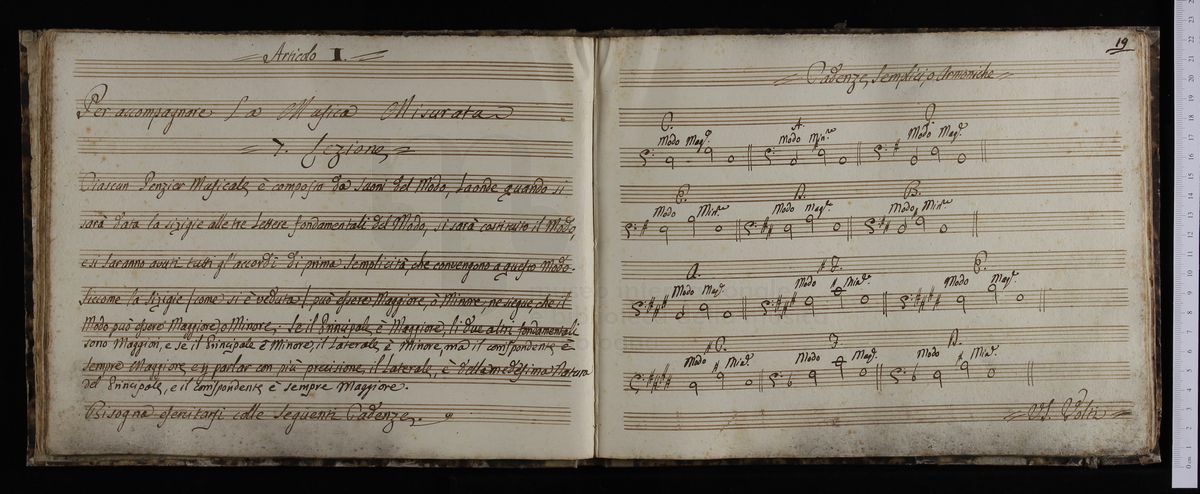 Articolo I.
Per accompagnare La Musica Misurata
7. Lezione
Ciascun Penzier Musicale è composto da suoni del Modo, Laonde quando si
sarà data la sizigie alle tre Lettere fondamentali del Modo, si sarà costituito il Modo,
e si saranno avuti tutti gl'accordi di prima semplicità che convengono a questo Modo.
Siccome la sizigie (come si è veduta) può essere Maggiore, e Minore, ne siegue, che il
Modo può essere Maggiore, o Minore; Se il Principale è Maggiore li due altri fondamentali
sono Maggiori, e se il Principale è Minore, il Laterale, è Minore, ma il corrispondente è
sempre Maggiore e p parlar con più precisione, il Laterale, è della medesima Natura
del Principale, e il corrispondente è sempre Maggiore.
Bisogna esercitarsi colle seguenti Cadenze.
19
Cadenze, semplici, o Armoniche
C. A. G.
Modo Mag.e Modo Min.e Modo Mag.e
E. D. B.
Modo Min.e Modo Mag.e Modo Min.e
A. #F. E.
Modo Mag.e Modo Min.e Modo Mag.e
#C. F. D.
Modo Min.e Modo Mag.e Modo Min.e
VS. Volti